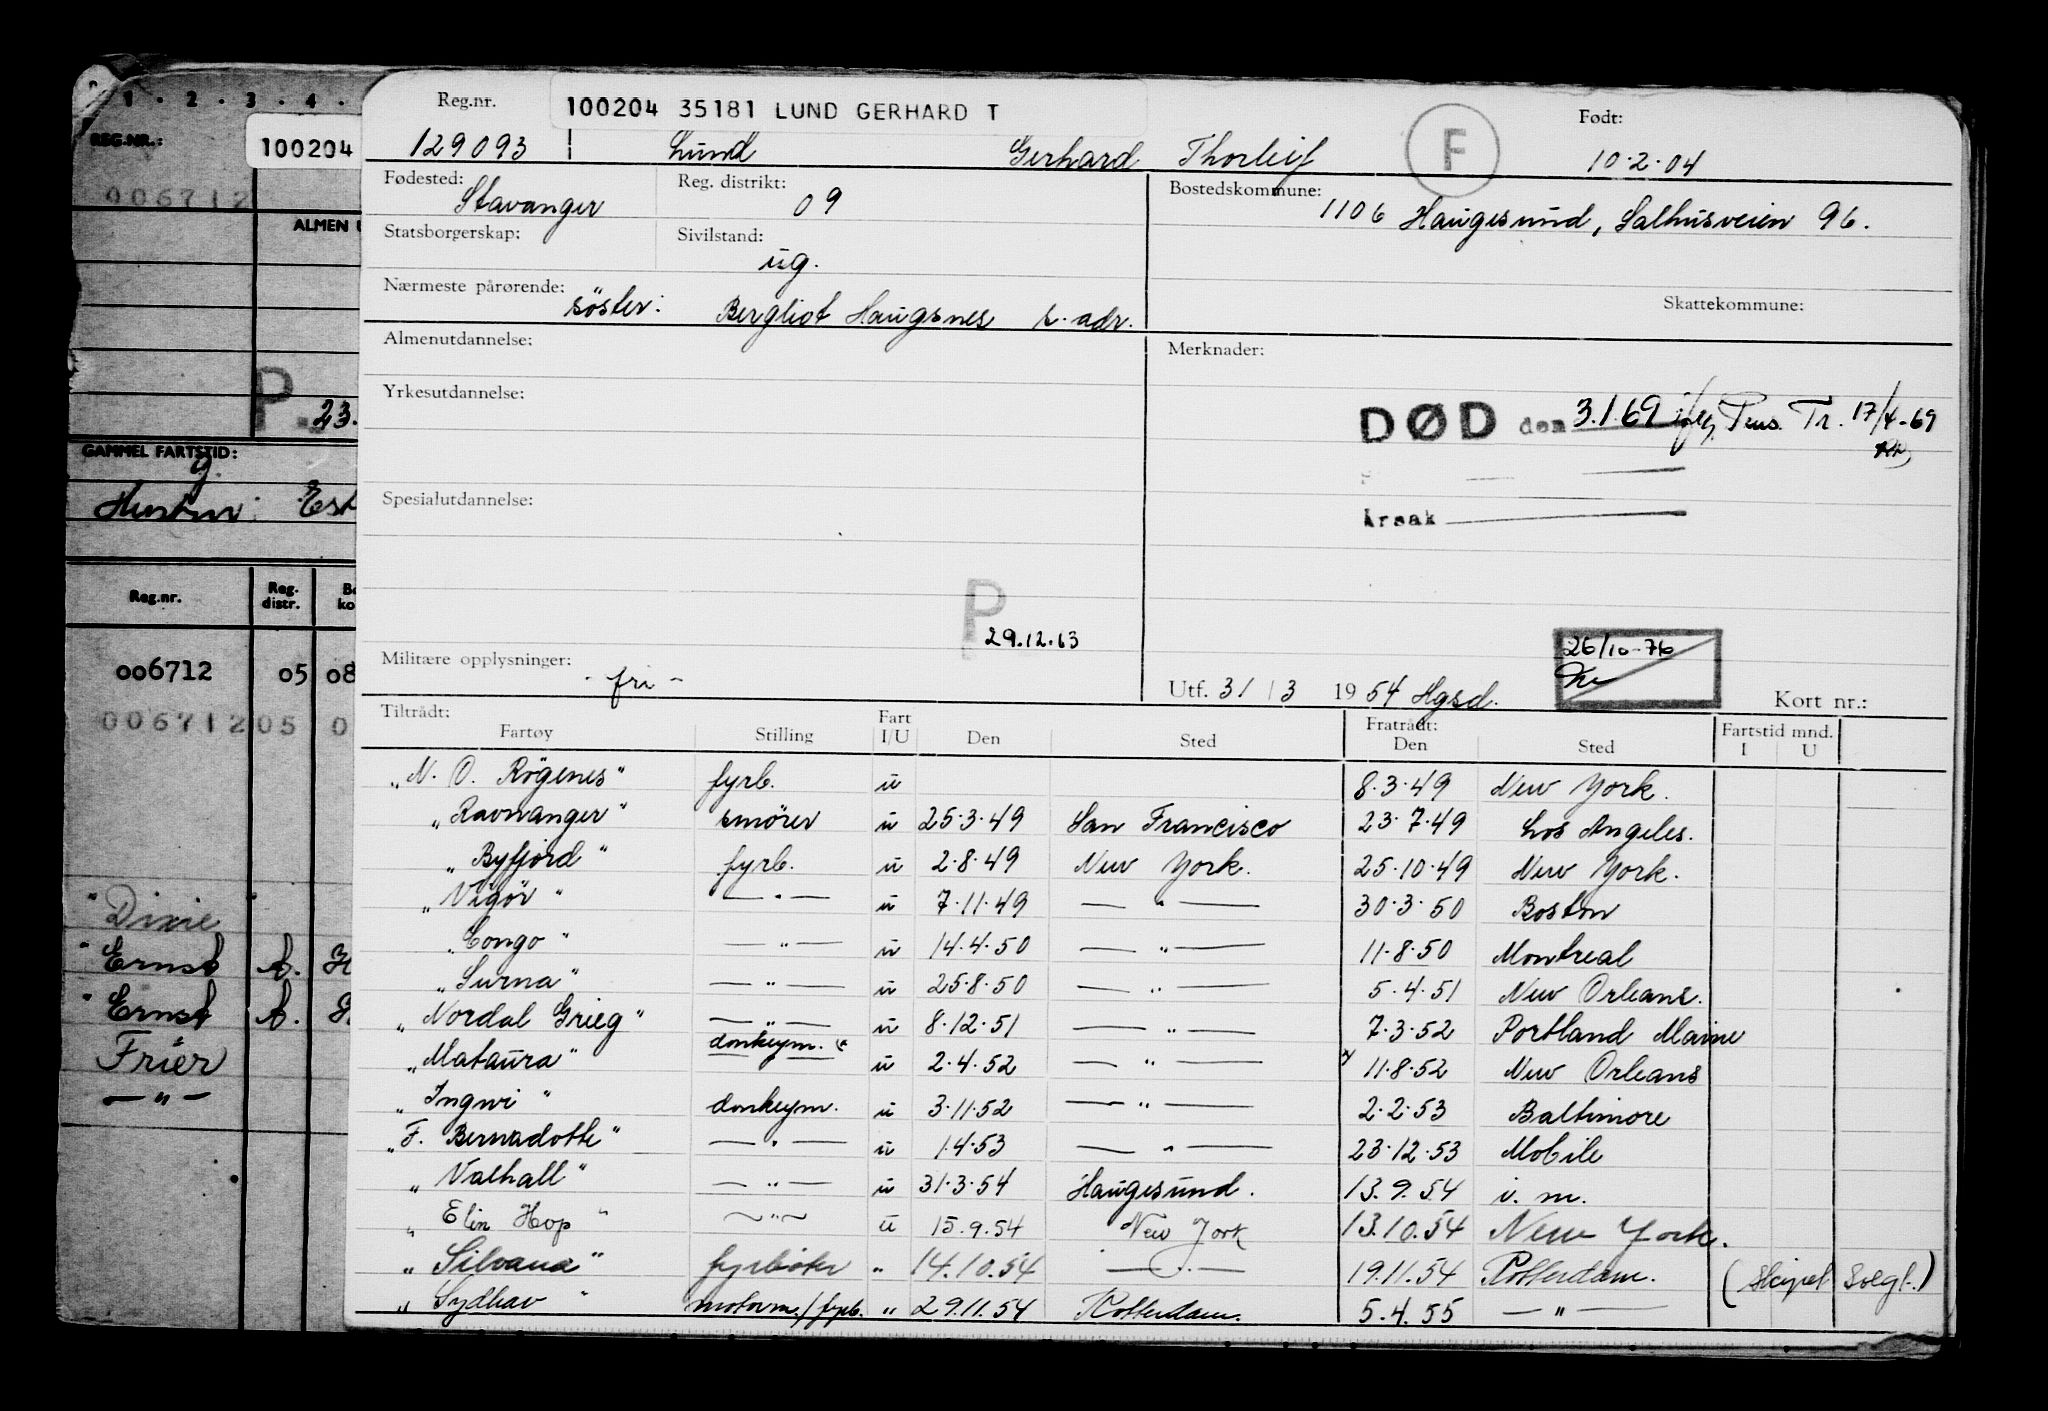 1 · 2 · 3 · 4 ·
REG.NR.:
100204
006712
ALMEN U
P 23.
GAMMEL FARTSTID:
g.
Est
Reg.nr. Reg. distr. Bo ko
006712 05 08
006712 05 0
" Dixie "
" Ernst A. H
" Ernst A. H
Frier
— " —
Reg.nr. 100204 35181 LUND GERHARD T F Født:
129093 Lund Gerhard Thorleif 10·2·04
Fødested: Stavanger Reg. distrikt: 09 Bostedskommune: 1106 Haugesund, Salhusveien 96.
Statsborgerskap: Sivilstand: ug.
Nærmeste pårørende: søster: Bergliot Haugsnes s. adr. Skattekommune:
Almenutdannelse: Merknader:
Yrkesutdannelse: DØD den 3.1.69 iflg. Pens. Tr. 17/4-69
Spesialutdannelse: Årsak
P 29.12.63
Militære opplysninger: - fri - Utf. 31 / 3 1954 Hgsd. 26/10-76 Kort nr.:
Tiltrådt: Fartøy Stilling Fart I/U Den Sted Fratrådt: Den Sted Fartstid mnd. I U
„N. O. Rögenes" fyrb. u 8·3·49 New York.
„Ravnanger" smører u 25·3·49 San Francisco 23·7·49 Los Angeles.
„Byfjord" fyrb. u 2·8·49 New York. 25·10·49 New York.
„Vigør" — " — u 7·11·49 — " — 30·3·50 Boston
„Congo" — " — u 14·4·50 — " — 11·8·50 Montreal
„Surna" — " — u 25·8·50 — " — 5·4·51 New Orleans.
„Nordal Grieg" — " — u 8·12·51 — " — 7·3·52 Portland Maine
„Mataura" donkeym. — " — u 2·4·52 — " — 11·8·52 New Orleans
„Ingwi" donkeym. u 3·11·52 — " — 2·2·53 Baltimore
„F. Bernadotte" — " — u 1·4·53 — " — 23·12·53 Mobile
„Valhall" — " — u 31·3·54 Haugesund. 13.9.54 i. m.
„Elin Hop" — " — u 15.9.54 New York 13.10.54 New York.
„Silvana" fyrbøter " 14.10.54 — " — 19.11.54 Rotterdam. (Skipet solgt.)
„Sydhav" motorm./fyrb. " 29.11.54 Rotterdam. 5.4.55 — " —